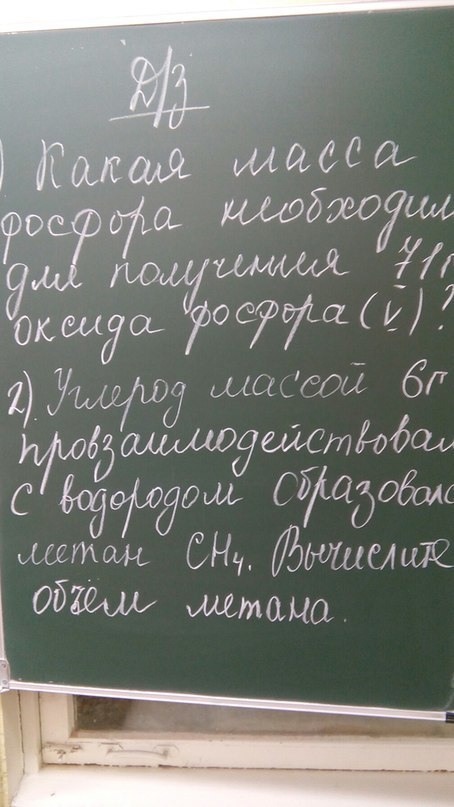 Д/з
) Какая масса
фосфора необходим
для получения 71г
оксида фосфора (V)?
2) Углерод массой 6г
провзаимодействовал
с водородом образовалс
метан CH₄. Вычислите
объём метана.